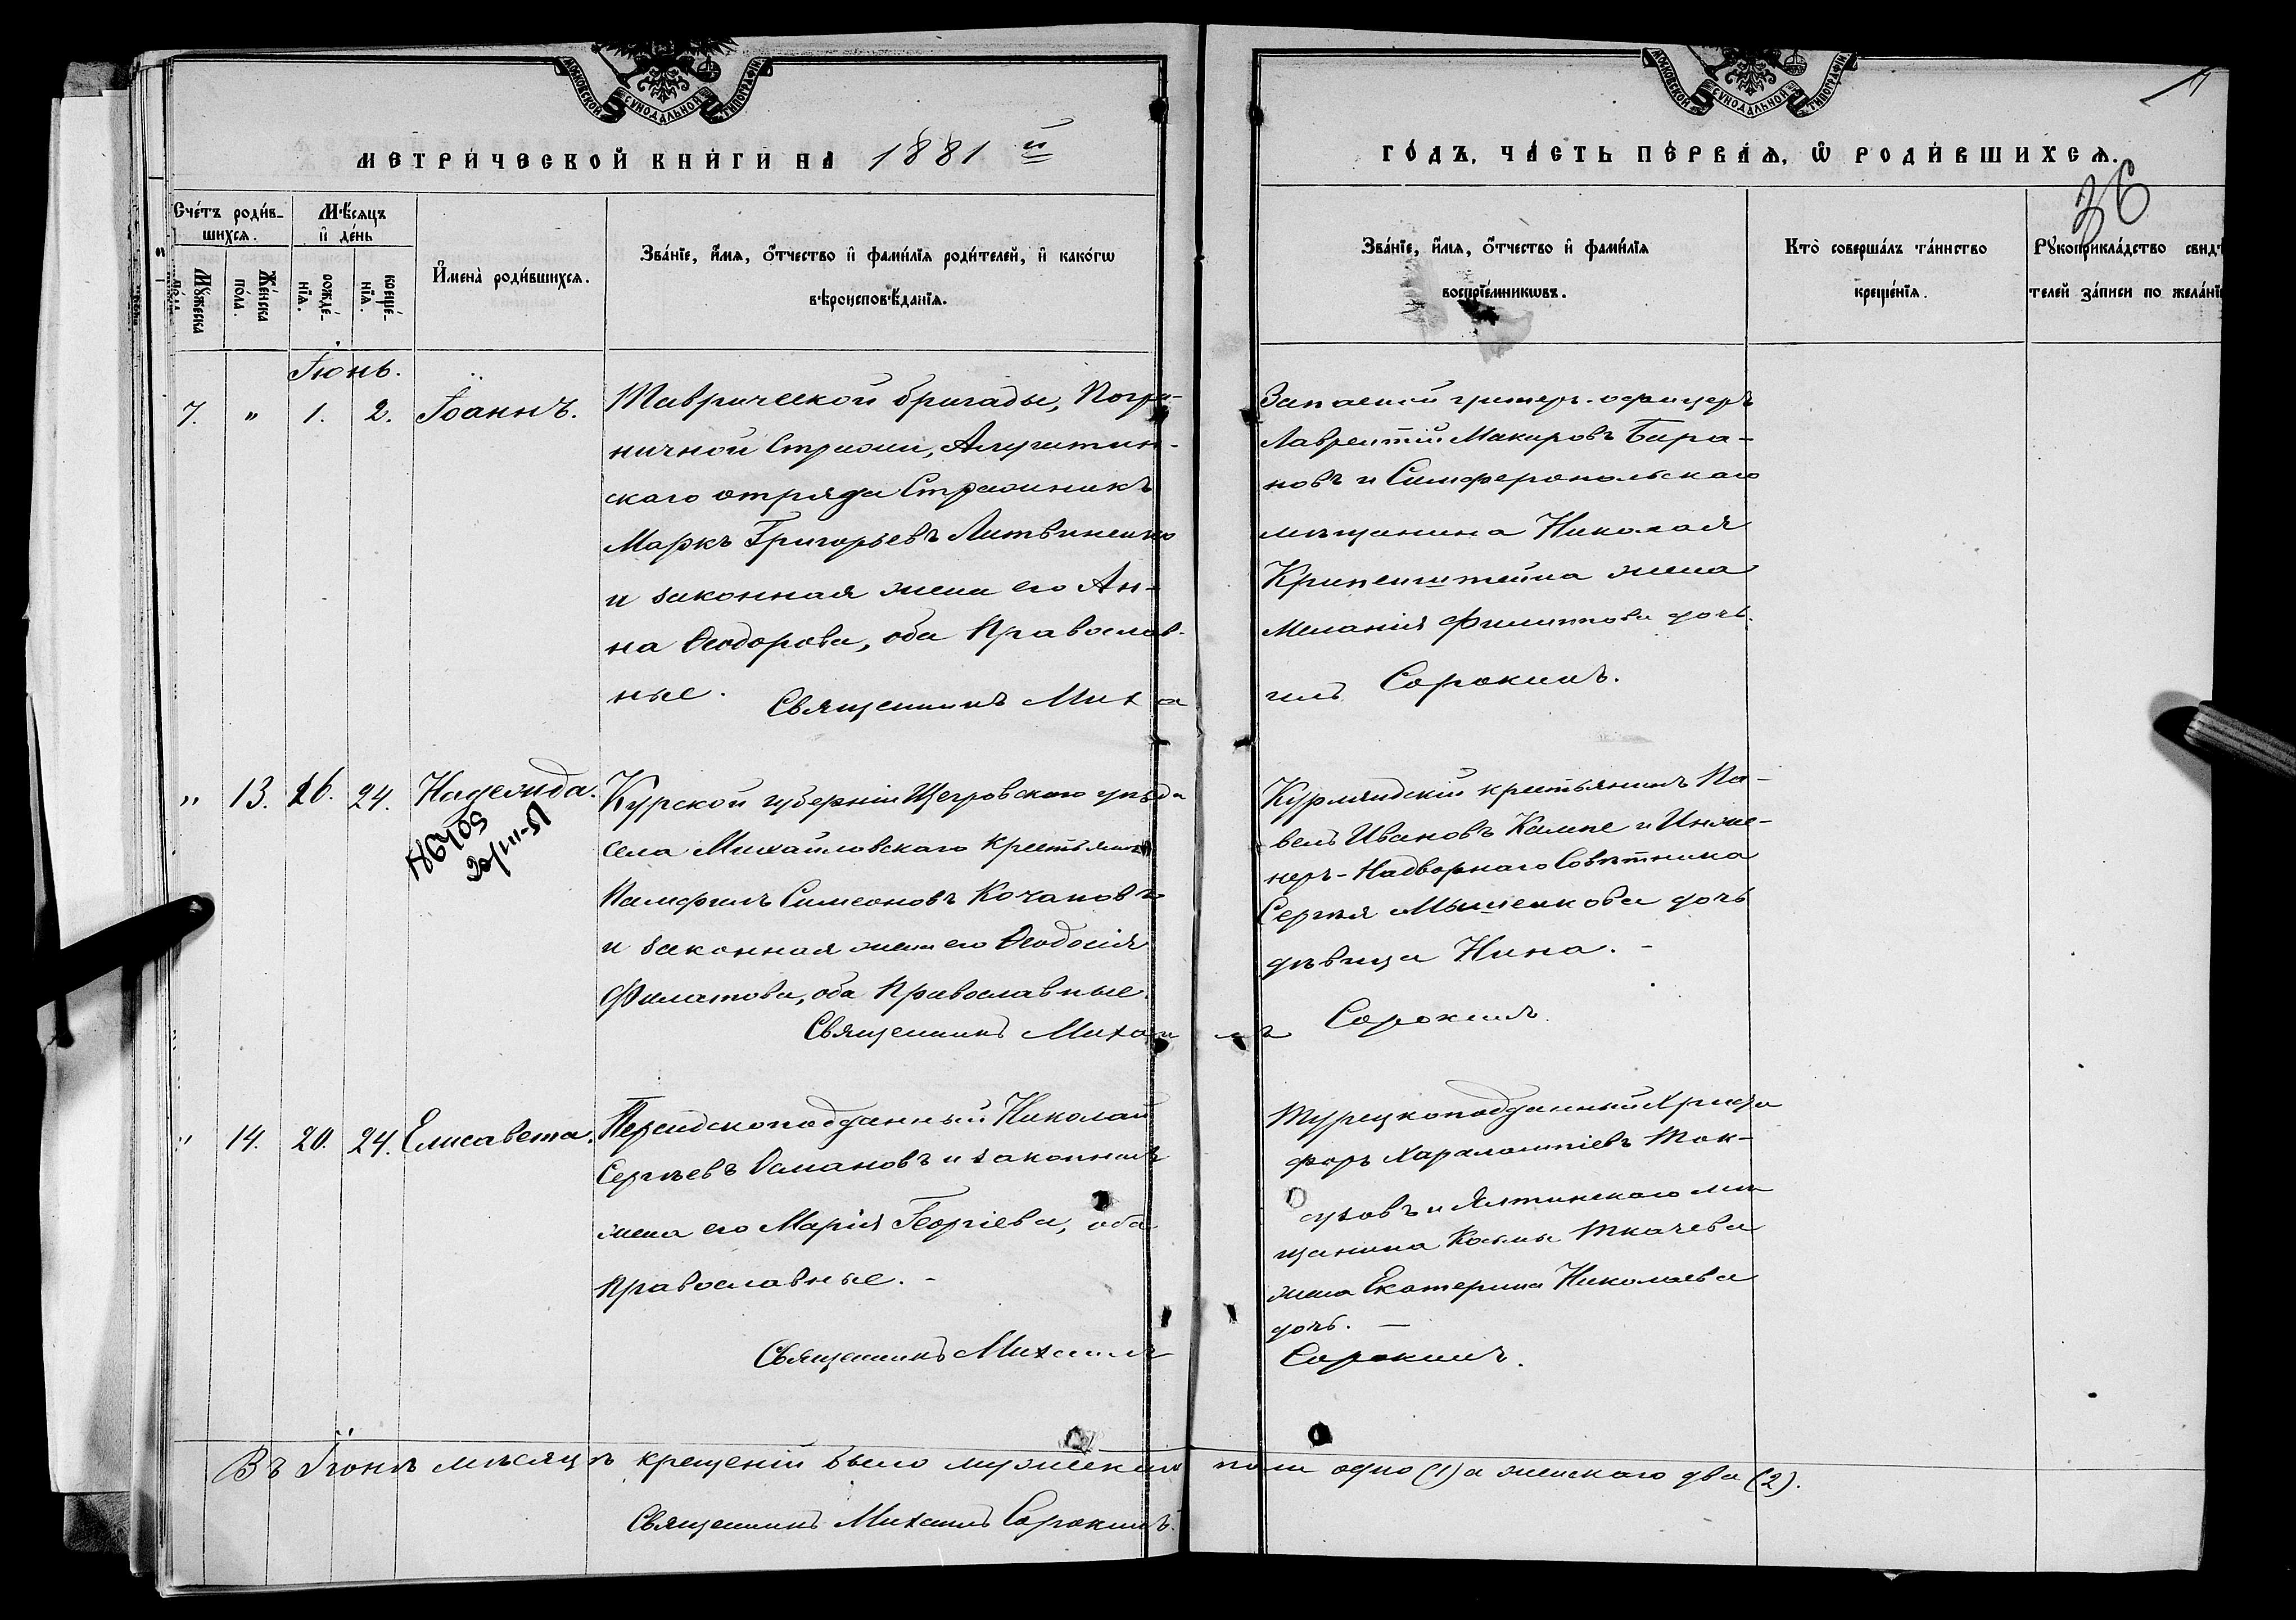 МОСКОВСКОЙ СѴНОДАЛЬНОЙ ТИПОГРАФІИ
МОСКОВСКОЙ СѴНОДАЛЬНОЙ ТИПОГРАФІИ
МЕТРИ́ЧЕСКОЙ КНИ́ГИ НА 1881 й
ГО́ДЪ, ЧА́СТЬ ПЕ́РВАѦ, Ѡ РОДИ́ВШИХСѦ.
36
Сче́тъ роди́в-
шихсѧ.
Мѣ́сѧцъ
и де́нь
Мꙋ́жеска
по́ла.
Же́нска
по́ла.
рожде́-
нїѧ.
креще́-
нїѧ.
И҆мена̀ роди́вшихсѧ.
Зва́нїе, и҆́мѧ, ѻ҆́тчество и҆ фами́лїѧ роди́телей, и҆ како́гѡ
вѣроисповѣ́данїѧ.
Зва́нїе, и҆́мѧ, ѻ҆́тчество и҆ фами́лїѧ
воспрїе́мникѡвъ.
Кто̀ соверша́лъ та́инство
креще́нїѧ.
Рꙋкоприкла́дство свидѣ
телей за́писи по жела́нїю
Іюнь.
7. " 1. 2. Іоаннъ.
Таврической бригады, Погра-
ничной Стражи, Алуштин-
скаго отряда Стражникъ
Маркъ Григорьевъ Литвиненко
и законная жена его Ан-
на Ѳеодорова, оба Православ-
ные.
Запасной унтеръ-офицеръ
Лаврентій Макаровъ Бара-
новъ и Симферопольскаго
мѣщанина Николая
жена
Меланія Филиппова дочь.
Священникъ Михаилъ Сорокинъ.
" 13. 16. 24. Надежда.
Курской губерніи Щегровскаго уѣзда
села Михайловскаго крестьянинъ
Памфилъ Симеоновъ Кочановъ
и законная жена его Ѳеодосія
Филатова, оба Православные.
Курляндскій крестьянинъ Па-
велъ Ивановъ Кампе и Инже-
неръ-Надворнаго Совѣтника
Сергѣя Мышенкова дочь
дѣвица Нина. -
Священникъ Михаилъ Сорокинъ.
" 14. 20. 24. Елисавета.
Персидскоподданный Николай
Сергѣевъ Османовъ и законная
жена его Марія Георгіева, оба
Православные. -
Турецкоподданный Христо
форъ Харалампіевъ Ток-
и Ялтинскаго мѣ
щанина Косьмы Ткачева
жена Екатерина Николаева
дочь. —
Священникъ Михаилъ Сорокинъ.
Въ Іюнѣ мѣсяцѣ крещеній было мужескаго пола одно (1) а женскаго два (2).
Священникъ Михаилъ Сорокинъ.